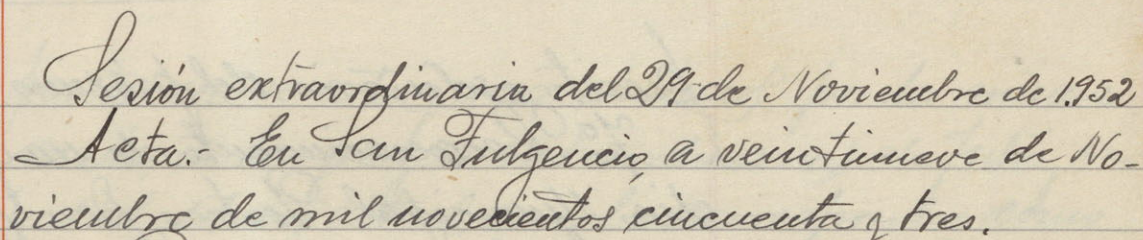 Sesión extraordinaria del 29 de Noviembre de 1.952
Acta.- En San Fulgencio, a veintinueve de No-
viembre de mil novecientos cincuenta y tres.